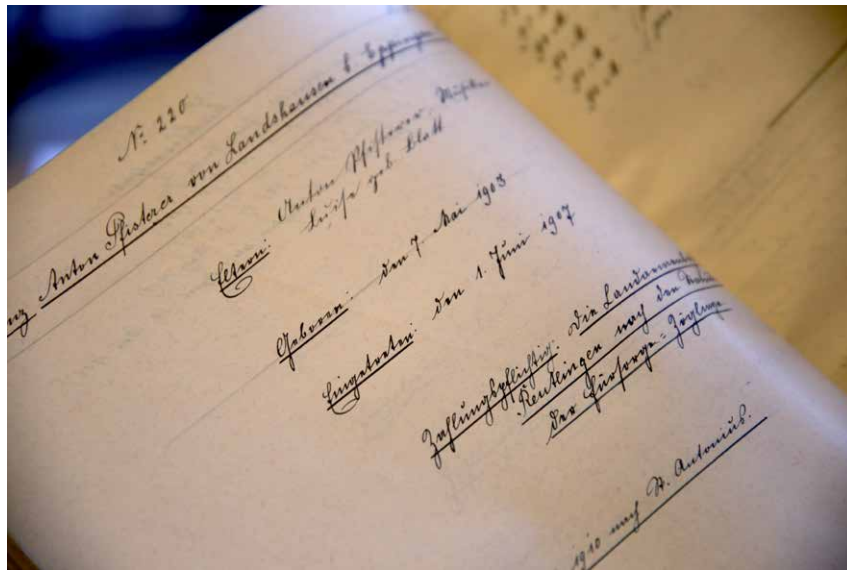 № 220
Anton Pfisterer von Landshausen b. Eppingen
Eltern: Anton Pfisterer,
Luise geb.
Geboren: den 7. Mai 1903
Eingetreten: den 1. Juni 1907
Zahlungspflichtig: Die
Reutlingen nach den
der Fürsorge=Zöglinge
1910 nach St. Antonius.